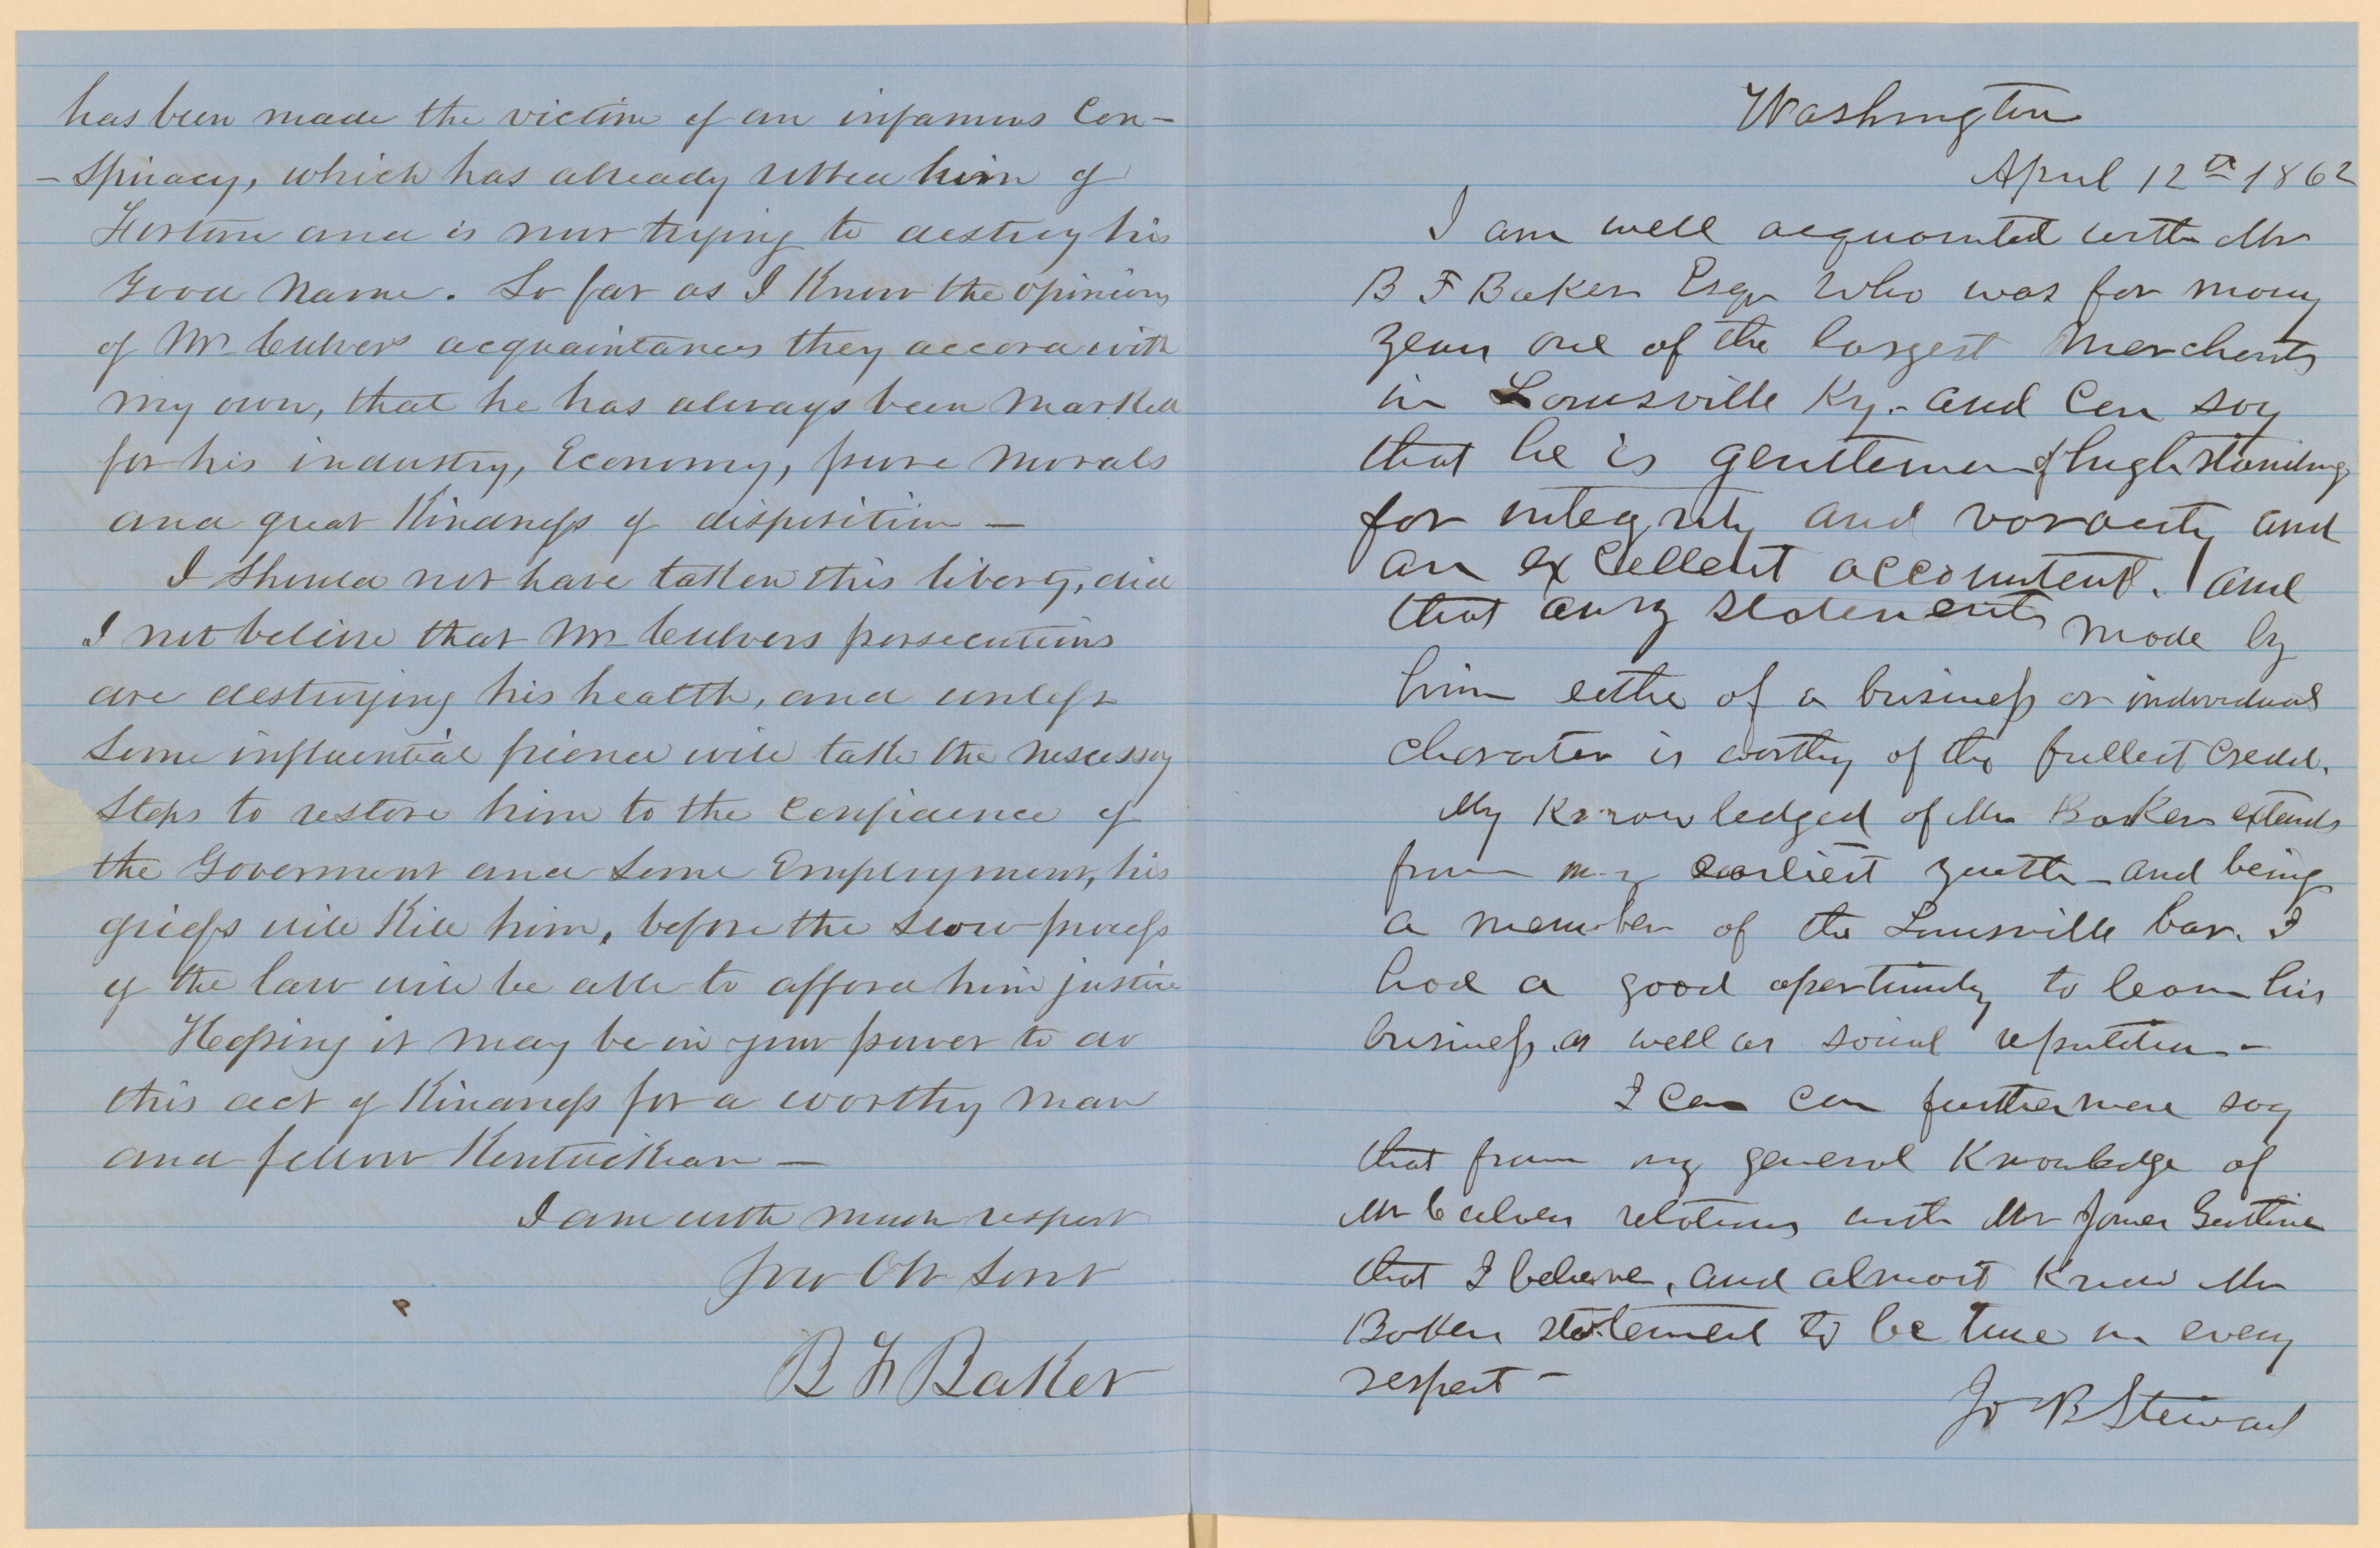 has been made the victim of an infamous Con-
- spiracy, which has already robbed him of
Fortune and is now trying to destroy his
Good Name. So far as I Know the opinions
of Mr Culvers acquaintances they accord with
my own, that he has always been marked
for his industry, Economy, pure Morals
and great Kindness of disposition —
I should not have taken this liberty, did
I not believe that Mr Culvers persecutions
are destroying his health, and unless
some influential friend will take the nescessary
steps to restore him to the Confidence of
the Goverment and some Employment, his
griefs will Kill him, before the slow process
of the law will be able to afford him justice
Hopeing it may be in your power to do
this act of Kindness for a worthy man
and fellow Kentuckian —
I am with much respect
your Ob Servt
B F Baker
Washington
April 12th 1862
I am well acquainted with Mr
B F Baker Esqr who was for many
years one of the largest Merchants
in Louisville Ky. - and Can say
that he is gentleman of high standing
for integrity and voracity and
an excellent accountent. and
that any statements made by
him either of a business or individual
charater is worthy of the fullest Credit.
My Knowledged of Mr Baker extends
from my earliest youth - and being
a member of the Louisville bar. I
had a good opertunity to learn his
business as well as social reputation -
I Can can furthermore say
that from my general Knowledge of
Mr Culver relations with Mr James Guthrie
that I believe, and almost Know Mr
Baker statement to be true in every
respect -
Jo B Stewart